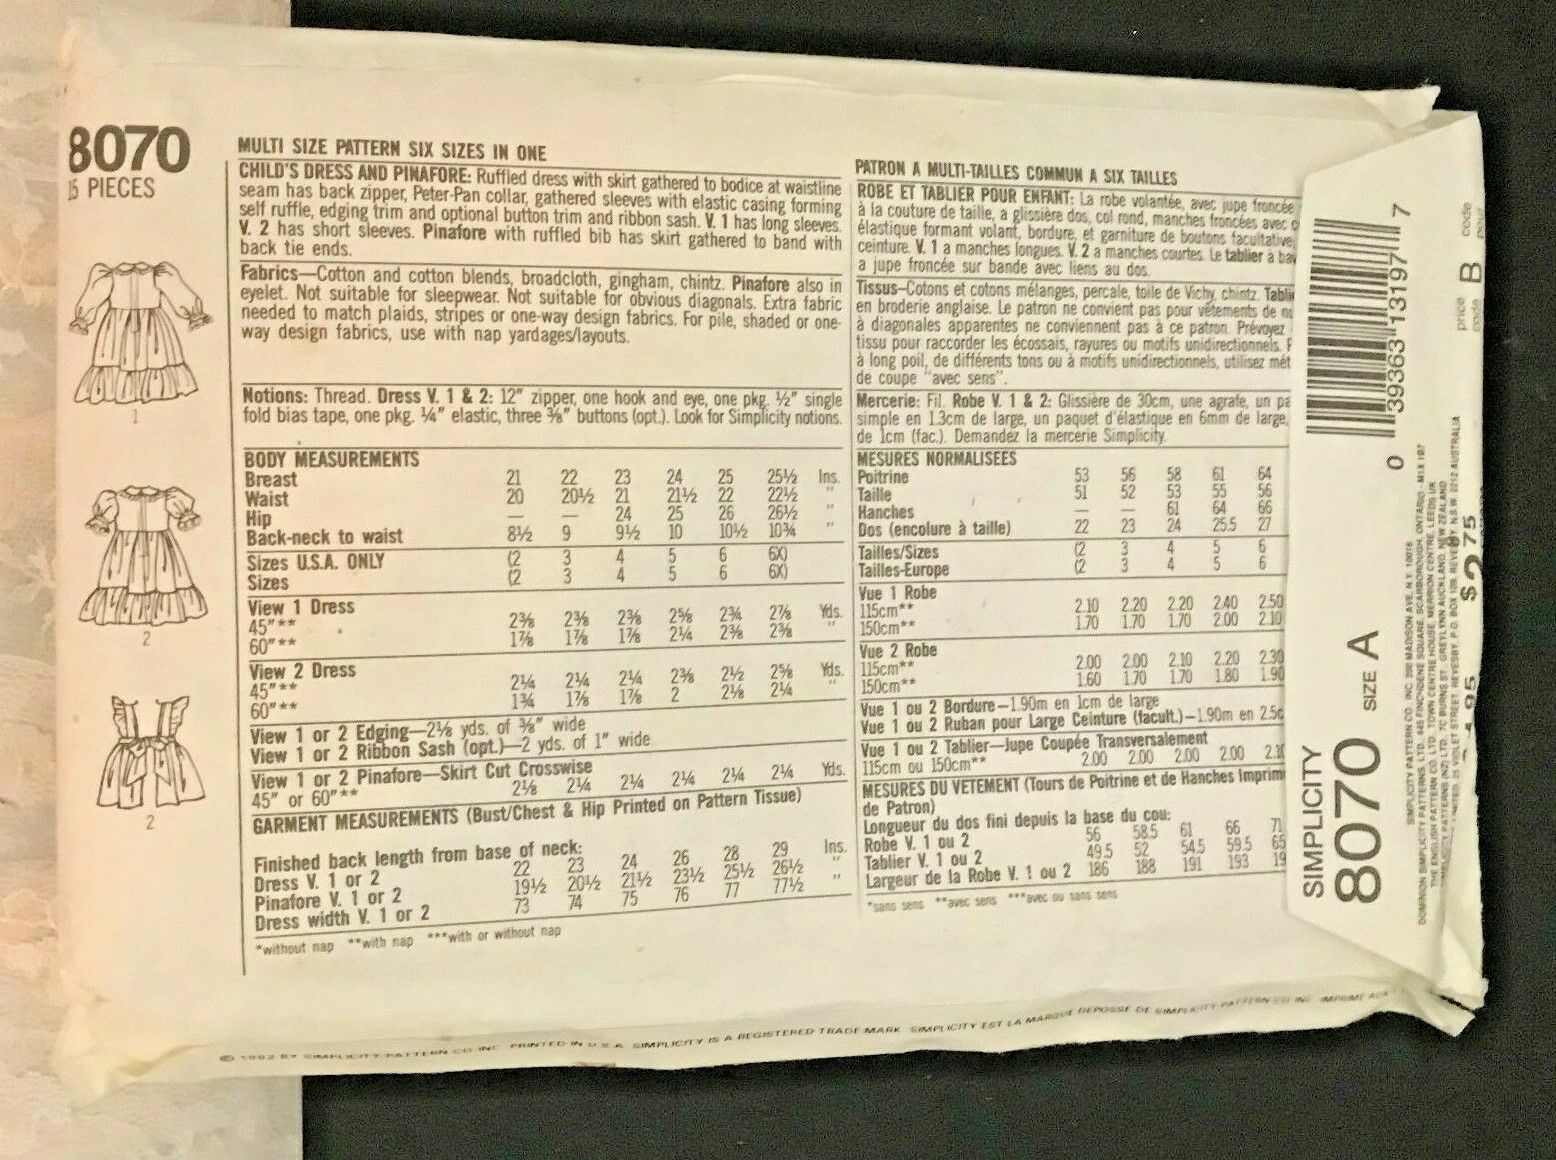 8070
15 PIECES
1
2
2
MULTI SIZE PATTERN SIX SIZES IN ONE
CHILD'S DRESS AND PINAFORE: Ruffled dress with skirt gathered to bodice at waistline
seam has back zipper, Peter-Pan collar, gathered sleeves with elastic casing forming
self ruffle, edging trim and optional button trim and ribbon sash. V. 1 has long sleeves.
V. 2 has short sleeves. Pinafore with ruffled bib has skirt gathered to band with
back tie ends.
Fabrics—Cotton and cotton blends, broadcloth, gingham, chintz. Pinafore also in
eyelet. Not suitable for sleepwear. Not suitable for obvious diagonals. Extra fabric
needed to match plaids, stripes or one-way design fabrics. For pile, shaded or one-
way design fabrics, use with nap yardages/layouts.
Notions: Thread. Dress V. 1 & 2: 12" zipper, one hook and eye, one pkg. ½" single
fold bias tape, one pkg. ¼" elastic, three ⅜" buttons (opt.). Look for Simplicity notions.
BODY MEASUREMENTS
Breast 21 22 23 24 25 25½ Ins.
Waist 20 20½ 21 21½ 22 22½ "
Hip — — 24 25 26 26½ "
Back-neck to waist 8½ 9 9½ 10 10½ 10¾ "
Sizes U.S.A. ONLY (2 3 4 5 6 6X)
Sizes (2 3 4 5 6 6X)
View 1 Dress
45"** 2⅜ 2⅜ 2⅜ 2⅝ 2¾ 2⅞ Yds.
60"** 1⅞ 1⅞ 1⅞ 2¼ 2⅜ 2⅜ "
View 2 Dress
45"** 2¼ 2¼ 2¼ 2⅜ 2½ 2⅝ Yds.
60"** 1¾ 1⅞ 1⅞ 2 2⅛ 2¼ "
View 1 or 2 Edging—2⅛ yds. of ⅜" wide
View 1 or 2 Ribbon Sash (opt.)—2 yds. of 1" wide
View 1 or 2 Pinafore—Skirt Cut Crosswise
45" or 60"** 2⅛ 2¼ 2¼ 2¼ 2¼ 2¼ Yds.
GARMENT MEASUREMENTS (Bust/Chest & Hip Printed on Pattern Tissue)
Finished back length from base of neck:
Dress V. 1 or 2 22 23 24 26 28 29 Ins.
Pinafore V. 1 or 2 19½ 20½ 21½ 23½ 25½ 26½ "
Dress width V. 1 or 2 73 74 75 76 77 77½ "
*without nap **with nap ***with or without nap
PATRON A MULTI-TAILLES COMMUN A SIX TAILLES
ROBE ET TABLIER POUR ENFANT: La robe volantée, avec jupe froncée
à la couture de taille, a glissière dos, col rond, manches froncées avec
élastique formant volant, bordure, et garniture de boutons facultative,
ceinture. V. 1 a manches longues. V. 2 a manches courtes. Le tablier à
a jupe froncée sur bande avec liens au dos.
Tissus—Cotons et cotons mélanges, percale, toile de Vichy, chintz.
en broderie anglaise. Le patron ne convient pas pour vêtements de
à diagonales apparentes ne conviennent pas à ce patron. Prévoyez
tissu pour raccorder les écossais, rayures ou motifs unidirectionnels.
à long poil, de différents tons ou à motifs unidirectionnels, utilisez
de coupe "avec sens".
Mercerie: Fil. Robe V. 1 & 2: Glissière de 30cm, une agrafe, un
simple en 1.3cm de large, un paquet d'élastique en 6mm de large,
de 1cm (fac.). Demandez la mercerie Simplicity.
MESURES NORMALISEES
Poitrine 53 56 58 61 64
Taille 51 52 53 55 56
Hanches — — 61 64 66
Dos (encolure à taille) 22 23 24 25.5 27
Tailles/Sizes (2 3 4 5 6
Tailles-Europe (2 3 4 5 6
Vue 1 Robe
115cm** 2.10 2.20 2.20 2.40 2.50
150cm** 1.70 1.70 1.70 2.00 2.10
Vue 2 Robe
115cm** 2.00 2.00 2.10 2.20 2.30
150cm** 1.60 1.70 1.70 1.80 1.90
Vue 1 ou 2 Bordure—1.90m en 1cm de large
Vue 1 ou 2 Ruban pour Large Ceinture (facult.)—1.90m en
Vue 1 ou 2 Tablier—Jupe Coupée Transversalement
115cm ou 150cm** 2.00 2.00 2.00 2.00 2.10
MESURES DU VETEMENT (Tours de Poitrine et de Hanches
de Patron)
Longueur du dos fini depuis la base du cou:
Robe V. 1 ou 2 56 58.5 61 66 71
Tablier V. 1 ou 2 49.5 52 54.5 59.5 65
Largeur de la Robe V. 1 ou 2 186 188 191 193
*sans sens **avec sens ***avec ou sans sens
0 39363 13197 7
SIMPLICITY
8070 SIZE A
price code B
code
SIMPLICITY PATTERN CO. INC. 200 MADISON AVE. N.Y. 10016
DOMINION SIMPLICITY PATTERNS, LTD. SCARBOROUGH, ONTARIO
$2.75
© 1992 BY SIMPLICITY PATTERN CO INC PRINTED IN U.S.A. SIMPLICITY IS A REGISTERED TRADE MARK SIMPLICITY EST LA MARQUE DEPOSSE DE SIMPLICITY PATTERN CO INC IMPRIME